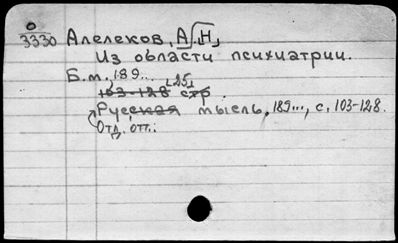 О
3330 Алелеков, А.Н.
Из области психиатрии.
Б.м., 189...
25
103-128 стр.
Русская мысль, 189..., с. 103-128.
Отд. отт.